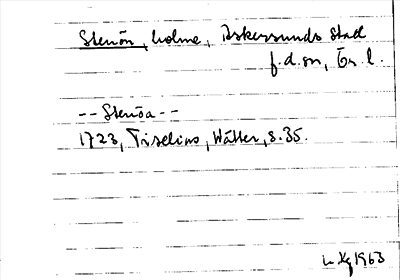 Stenön, holme, Askersunds stad
f.d. sn, Ör. l.
-- Stenöa --
1723, Tiselius, Wätter, s. 35.
1963